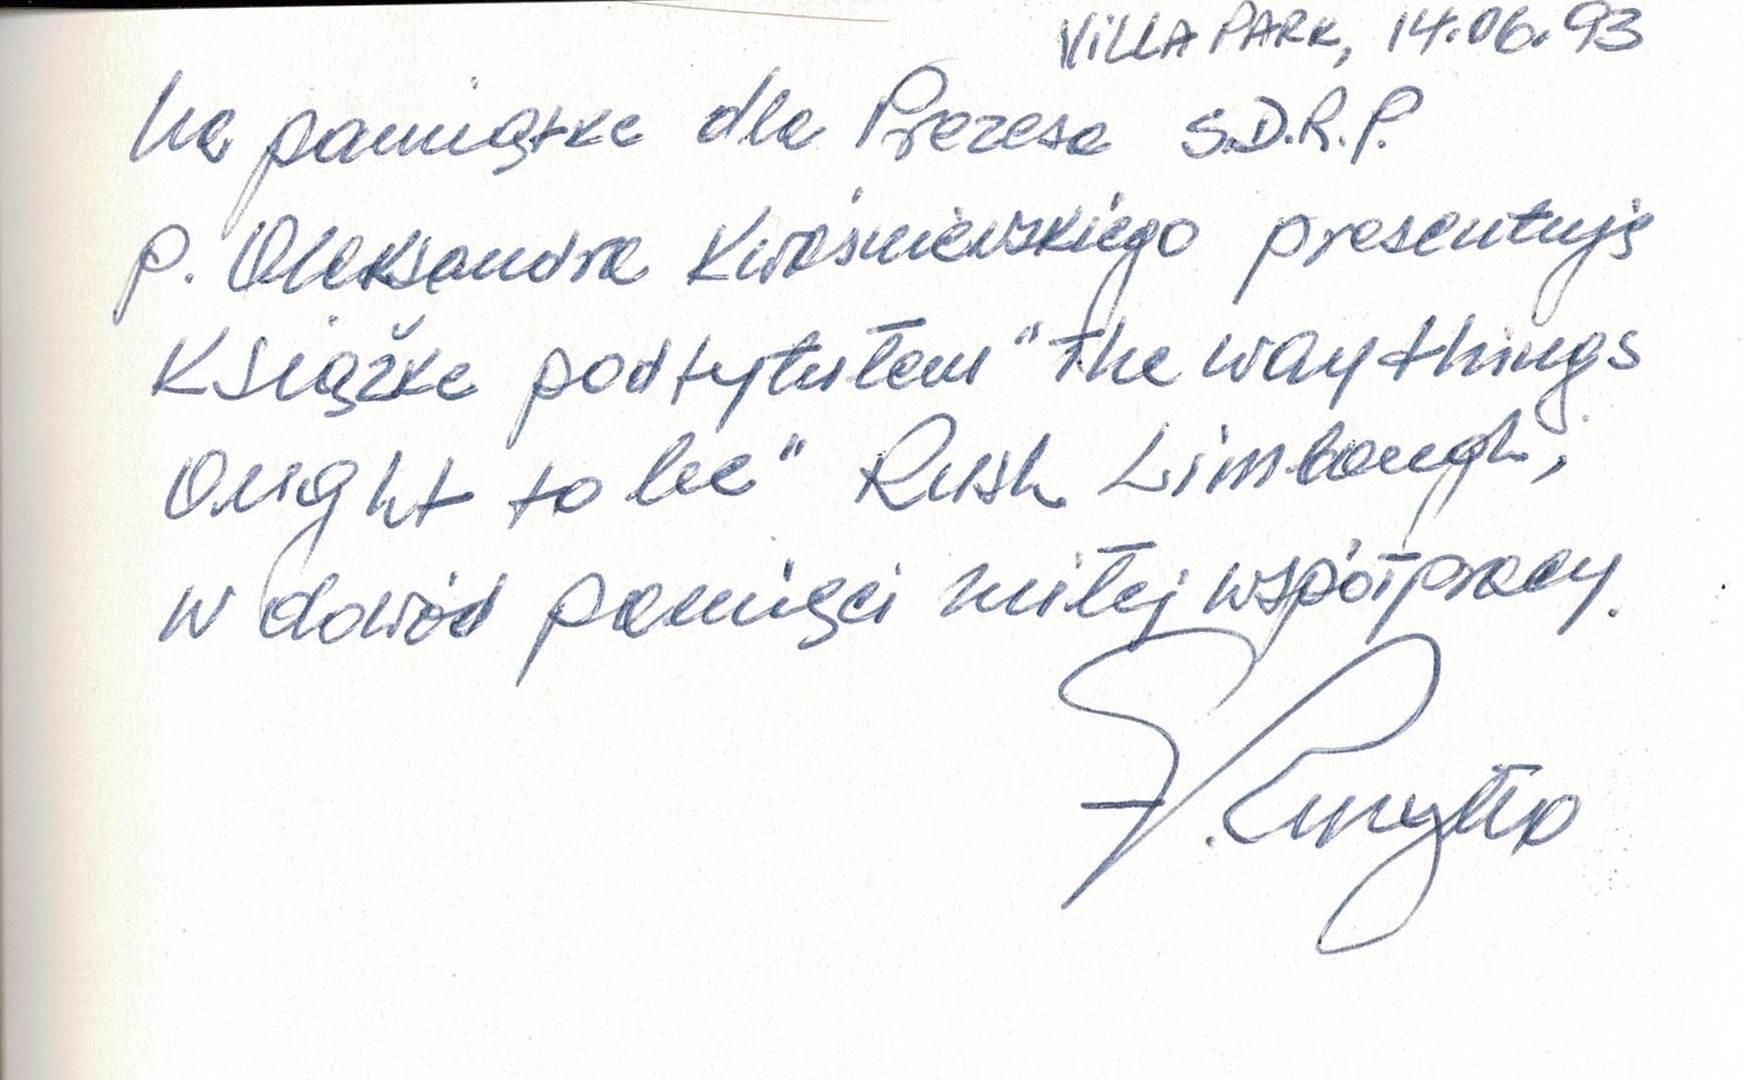 VILLA PARK, 14.06.93
Na pamiątkę dla Prezesa S.D.R.P.
p. Oleksandra Kwaśniewskiego presentuję
Książkę pod tytułem "The way things
Ought to be" Rush Limbaugh,
w dowód pamięci miłej współpracy.